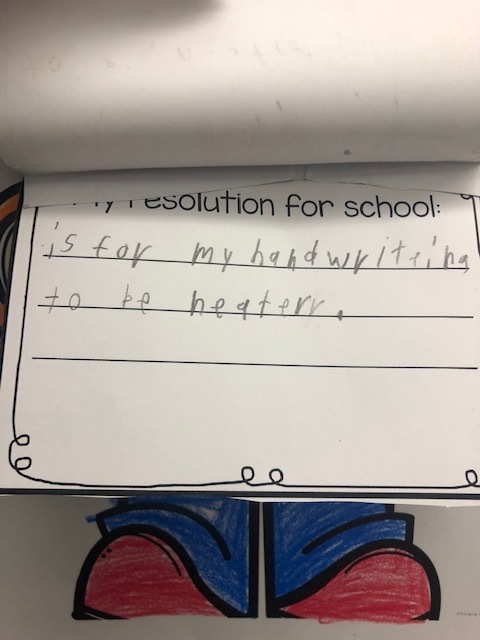 My resolution for school:
is for my handwriteing
to be neaterr.